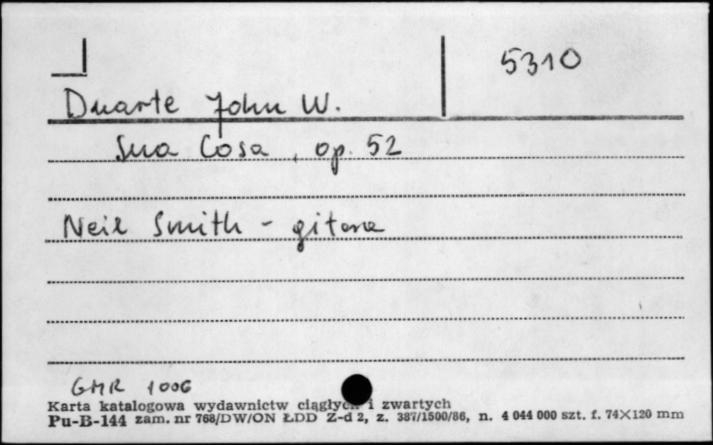 5310
Duarte John W.
Sua Cosa, op. 52
Neil Smith - gitara
GMR 1006
Karta katalogowa wydawnictw ciągłych i zwartych
Pu-B-144 zam. nr 768/DW/ON ŁDD Z-d 2, z. 387/1500/86, n. 4 044 000 szt. f. 74×120 mm